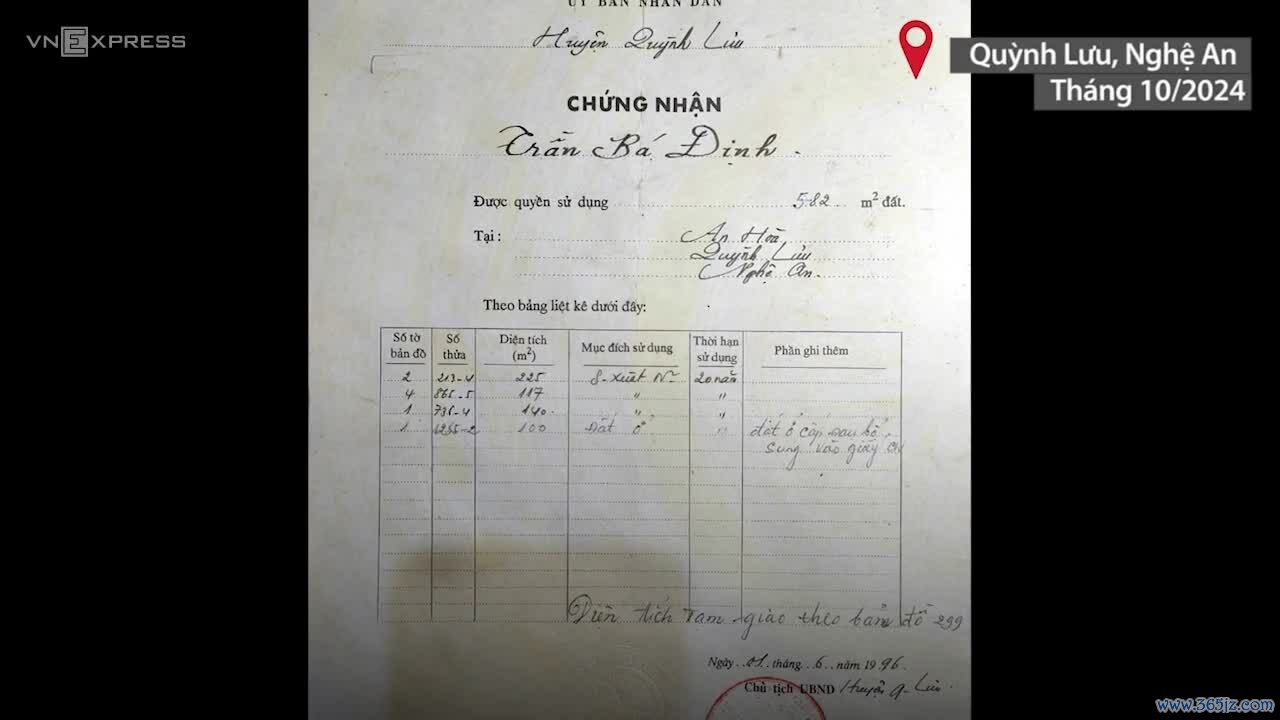 VNEXPRESS
Quỳnh Lưu, Nghệ An
Tháng 10/2024
ỦY BAN NHÂN DÂN
Huyện Quỳnh Lưu
CHỨNG NHẬN
Trần Bá Định.
Được quyền sử dụng 582 m² đất.
Tại: An Hoà
Quỳnh Lưu
Nghệ An.
Theo bảng liệt kê dưới đây:
Số tờ bản đồ Số thửa Diện tích (m²) Mục đích sử dụng Thời hạn sử dụng Phần ghi thêm
2 213-4 225 S-xuất Nº 20 năm
4 865-5 117 " "
1 735-4 140 " "
1 100 Đất ở " đất ở cấp sau bổ
sung vào giấy CN
Diện tích tạm giao theo bản đồ 299
Ngày 01 tháng 6 năm 1996
Chủ tịch UBND Huyện Q. Lưu
www.365jz.com